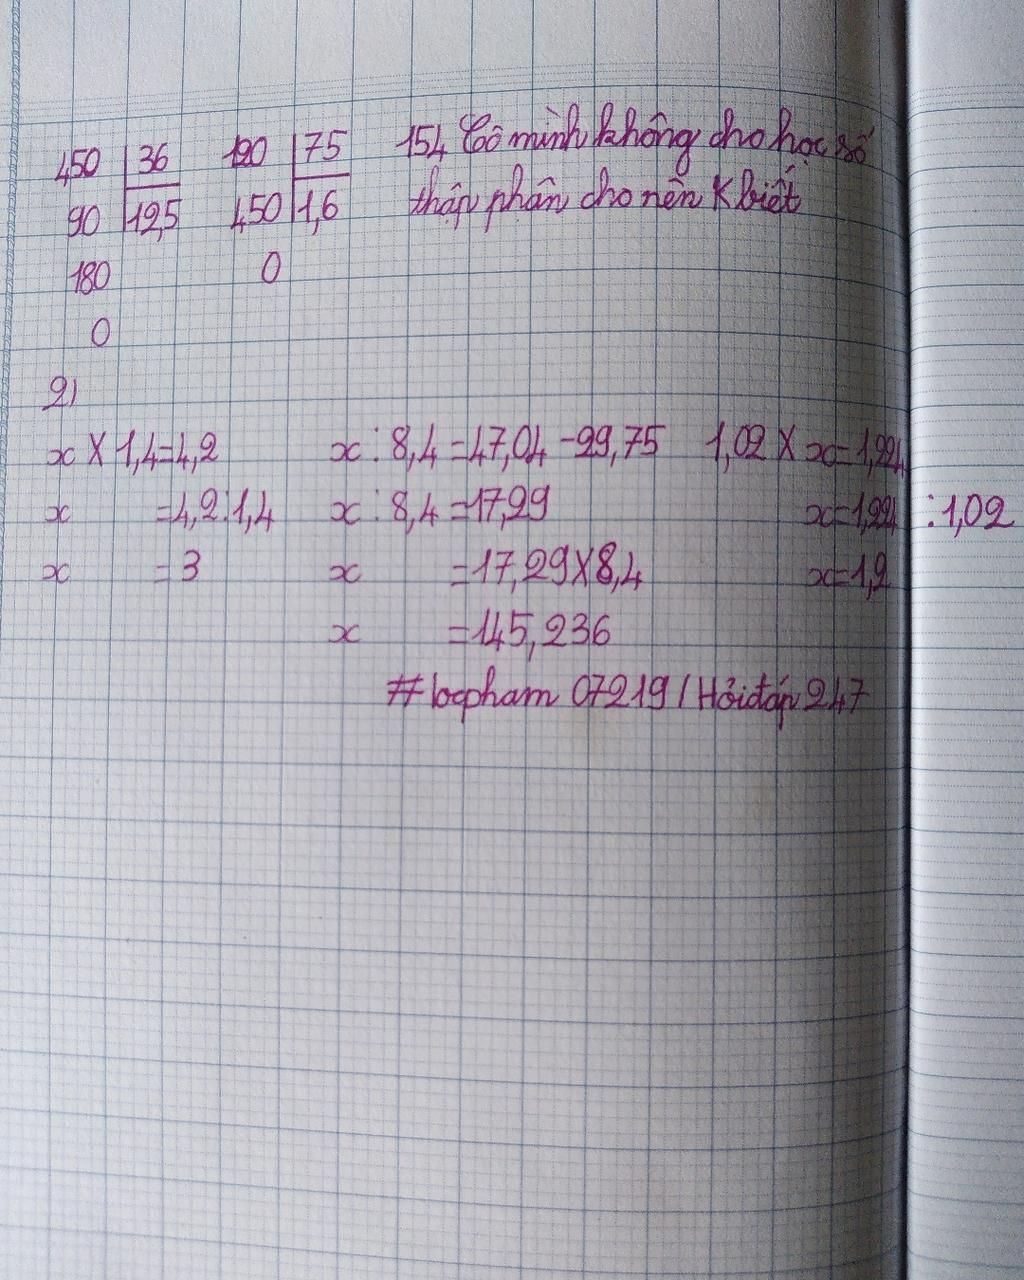 450 36 120 75 154 Cô mình không cho học số
90 12,5 450 1,6 thập phân cho nên K biết
180 0
0
2)
x X 1,4=4,2 x : 8,4 =47,04 -29,75 1,02 X x=1,224
x =4,2:1,4 x : 8,4 =17,29 x=1,224 :1,02
x =3 x =17,29X8,4 x=1,2
x =145,236
#locpham 07219 / Hỏi đáp 247